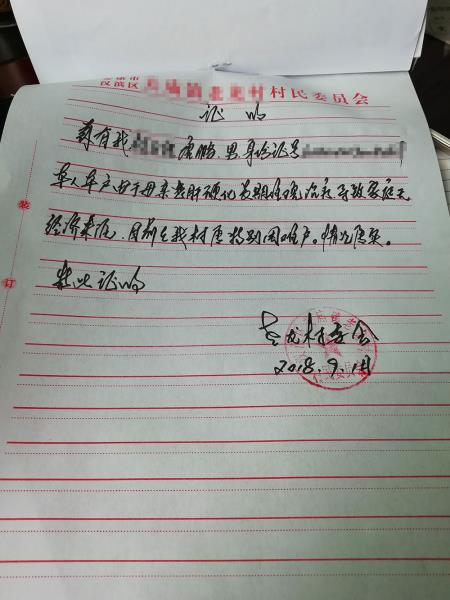 汉滨区 村民委员会
证明
兹有我 唐鹏,男身份证号
单人单户由于母亲患肝硬化长期住院治疗导致家庭无
经济来源,目前是我村属特别困难户。情况属实。
特此证明
村委会
2018.9.1日
装
订